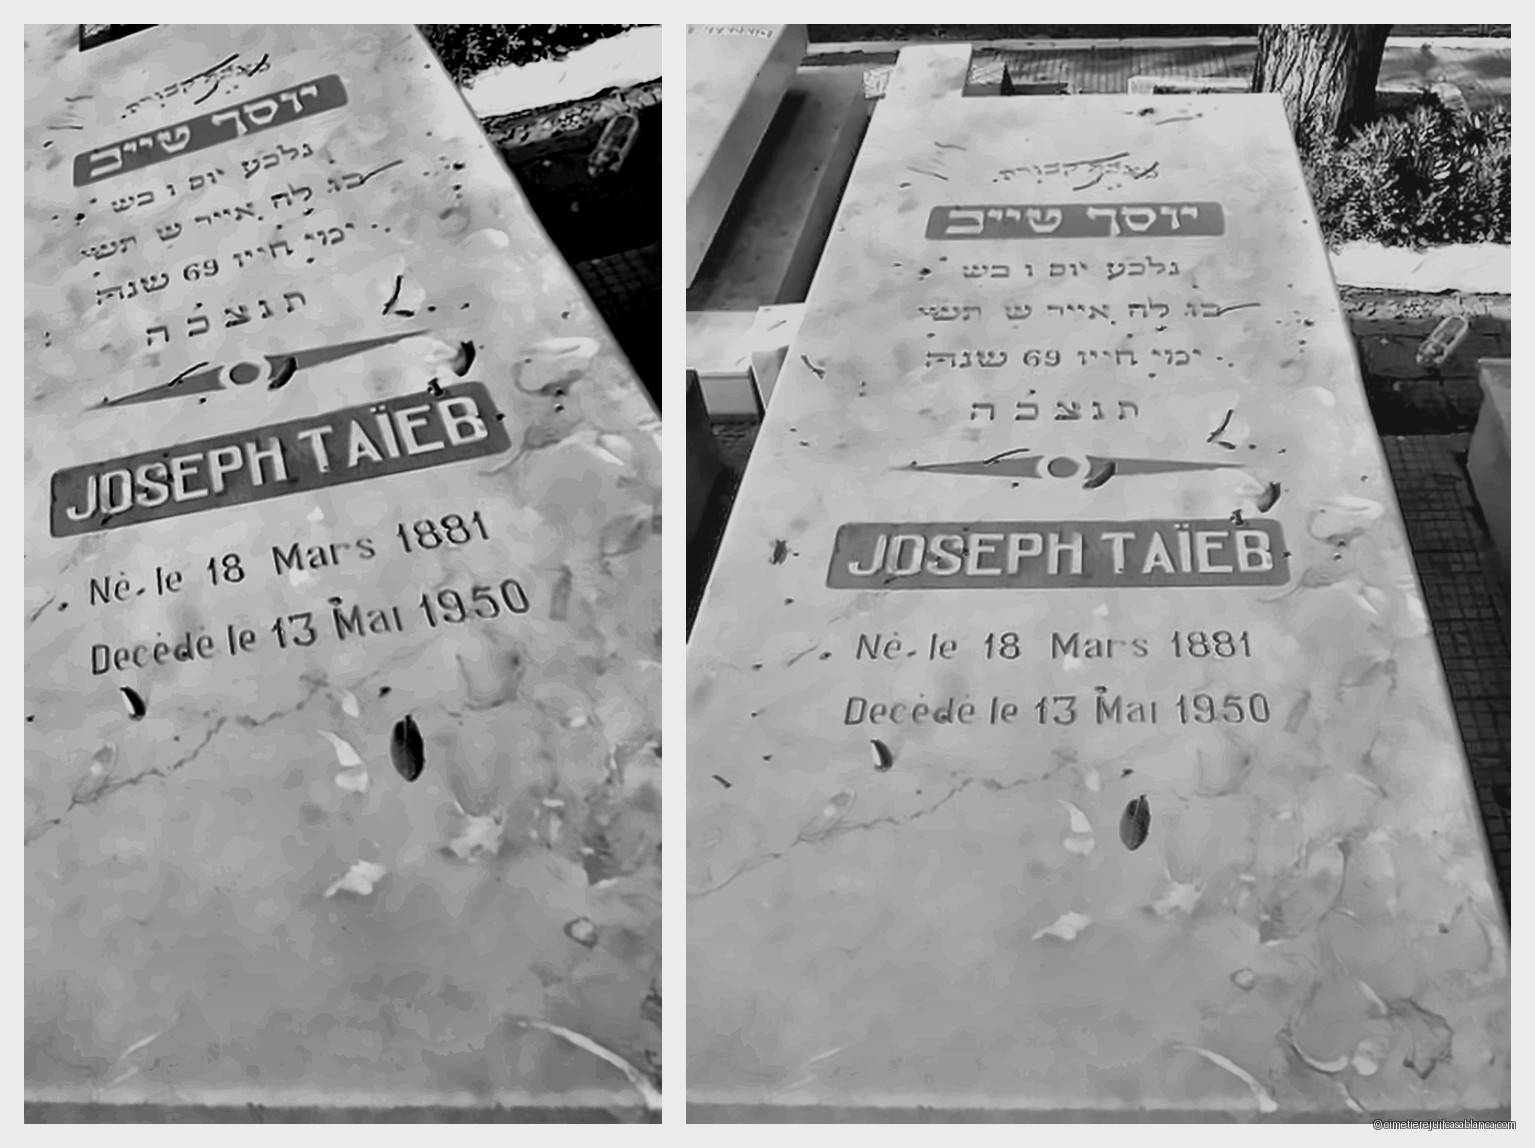 מצבת קבורת
יוסף טייב
נלבע יום ו בש
לח אייר ש תשי
ימי חייו 69 שנה
ת נ צ ב ה
JOSEPH TAÏEB
Né. le 18 Mars 1881
Decédé le 13 Mai 1950
מצבת קבורת
יוסף טייב
נלבע יום ו בש
לח אייר ש תשי
ימי חייו 69 שנה
ת נ צ ב ה
JOSEPH TAÏEB
Né. le 18 Mars 1881
Decédé le 13 Mai 1950
©cimetierejuifcasablanca.com